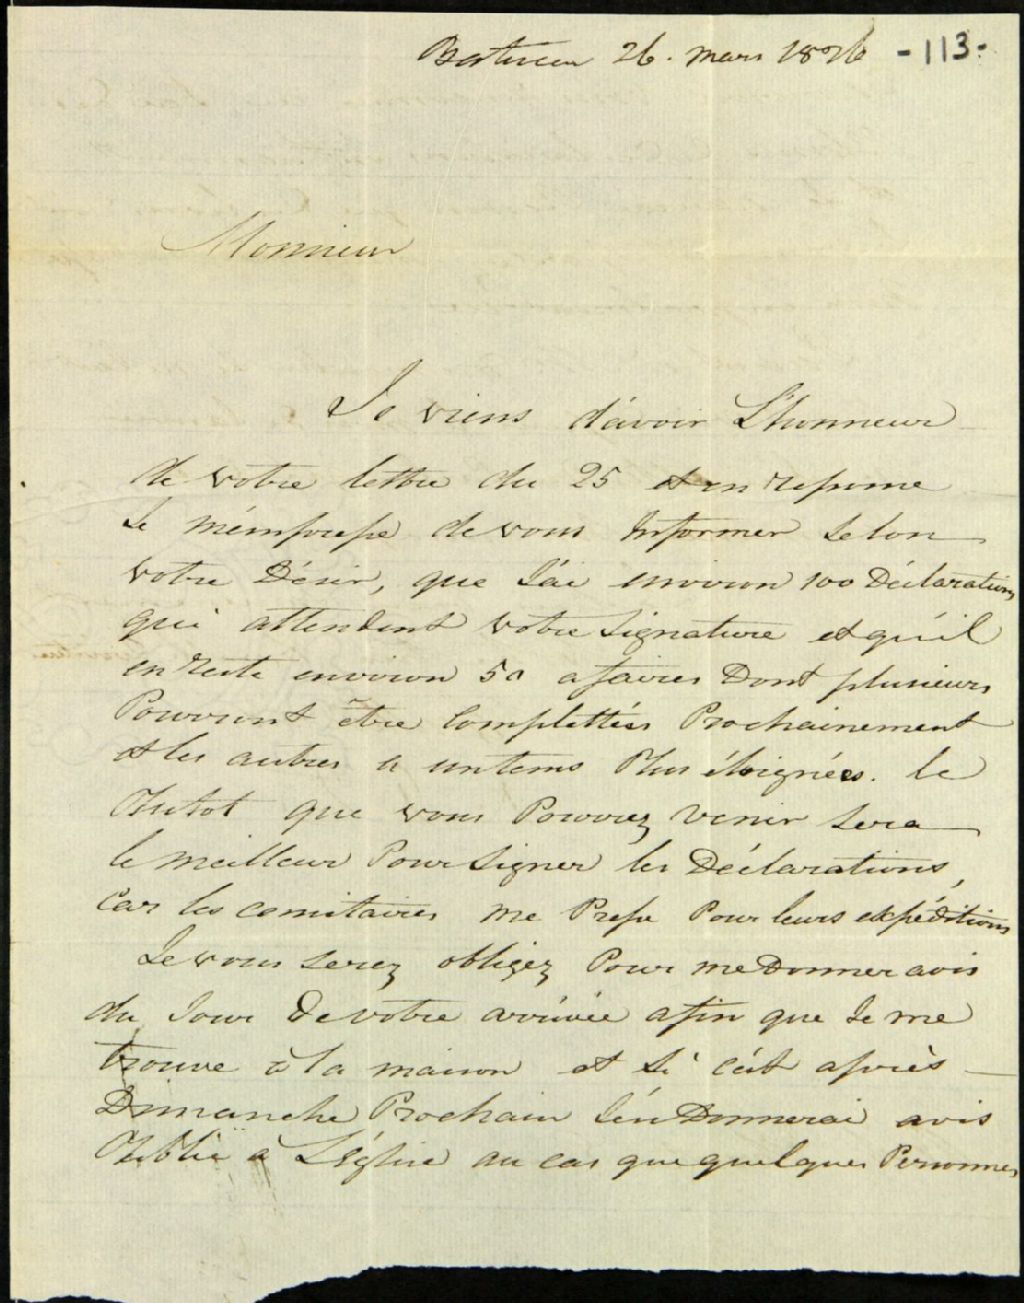 Berthier 26. mars 1826 -113-
Monsieur
Je viens d'avoir L'honneur
de votre lettre du 25 et en reponse
Je m'empresse de vous Informer Selon
votre Désir, que J'ai environ 100 Déclarations
qui attendent votre signature et qu'il
en reste environ 50 afaires Dont plusieurs
Pourront être complettées Prochainement
et les autres a untems Plus éloignées. le
Plutot que vous Pourrez venir sera
le meilleur Pour signer les Déclarations,
Car les censitaires me Presse Pour leurs expéditions
Je vous serez obligez Pour me Donner avis
du Jour De votre arrivée afin que Je me
trouve à la maison et Si c'est après
Dimanche Prochain J'én Donnerai avis
Publie a L'église au cas que quelques Personnes